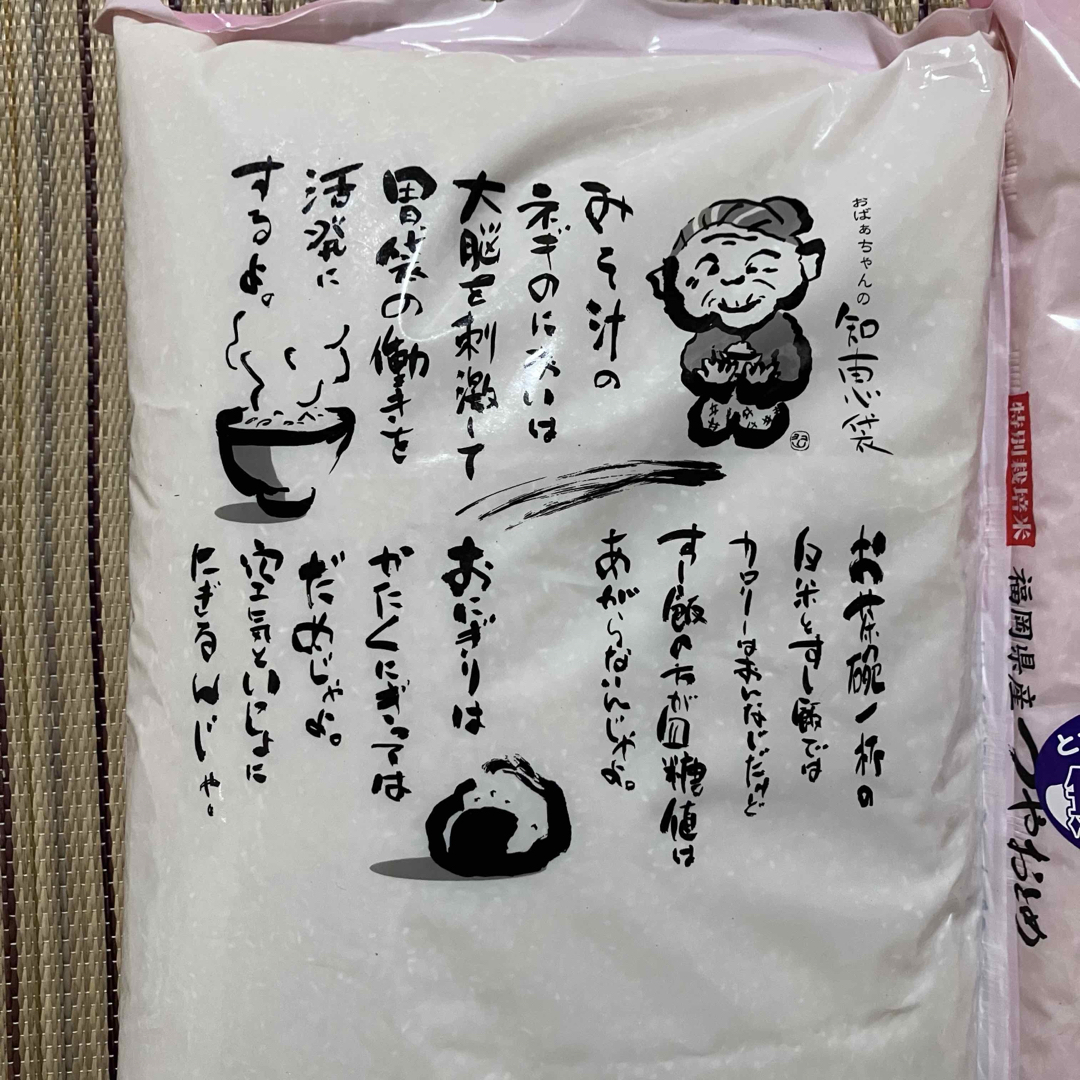 おばぁちゃんの
知恵袋
みそ汁の
ネギのにおいは
大脳を刺激して
胃袋の働きを
活発に
するよ。
お茶碗一杯の
白米とすし飯では
カロリーはおんなじだけど
すし飯の方が血糖値は
あがらないんじゃよ。
おにぎりは
かたくにぎっては
だめじゃよ。
空気といっしょに
にぎるんじゃ。
特別栽培米
福岡県産
つやおとめ